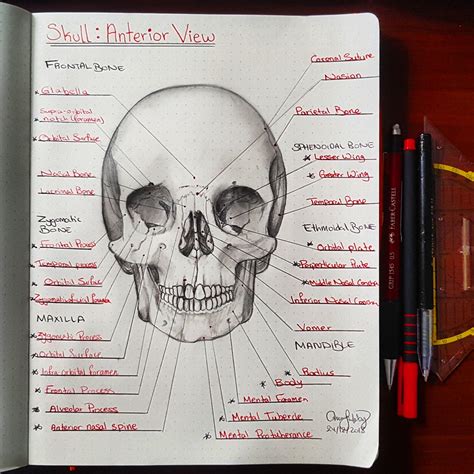 Skull: Anterior View
FRONTAL BONE
Glabella
Supra-orbital
notch (foramen)
Orbital Surface
Nasal Bone
Lacrimal Bone
Zygomatic
BONE
Frontal Process
Temporal process
Orbital Surface
Zygomaticofacial foramen
MAXILLA
Zygomatic Process
Orbital Surface
Infra orbital foramen
Frontal Process
Alveolar Process
Anterior nasal spine
Coronal Suture
Nasion
Parietal Bone
SPHENOIDAL BONE
Lesser Wing
Greater Wing
Temporal Bone
Ethmoidal Bone
Orbital plate
Perpendicular Plate
Middle Nasal Concha
Inferior Nasal Concha
Vomer
MANDIBLE
Ramus
Body
Mental Foramen
Mental Tubercle
Mental Protuberance
FABER-CASTELL